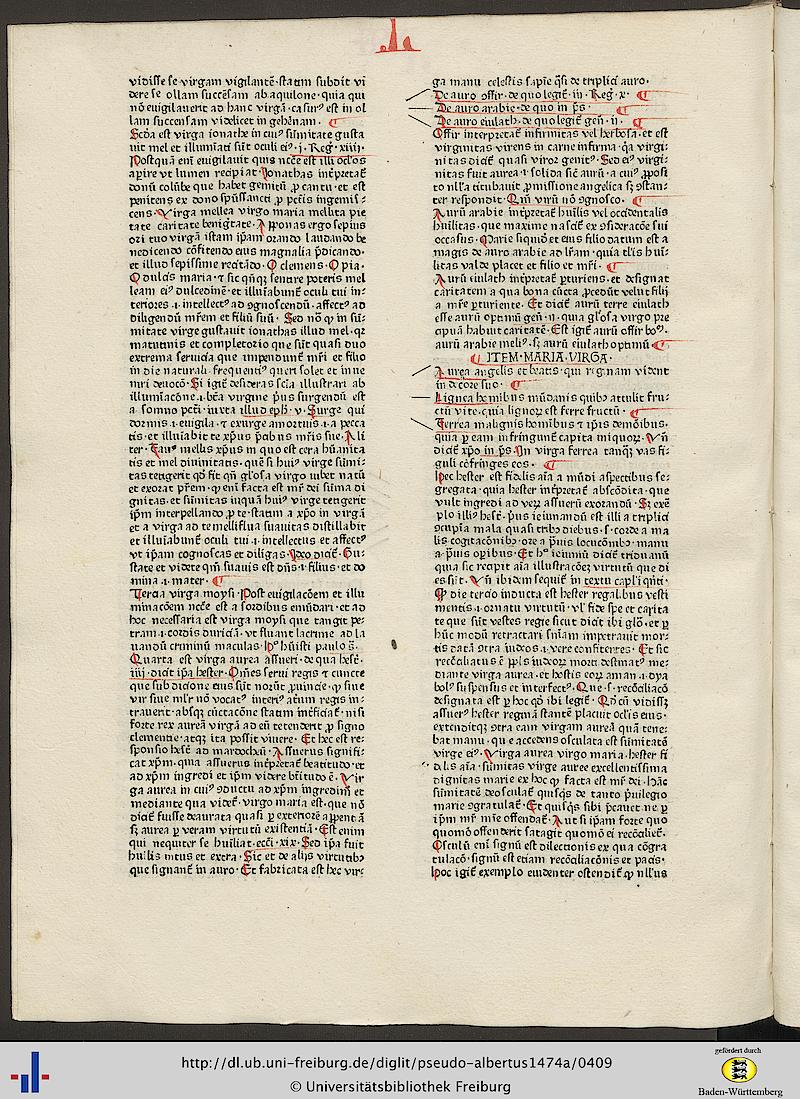 vidisse se virgam vigilantē·statim subdit vi
dere se ollam succēsam ab aquilone·quia qui
nō euigilauerit ad hanc virgā·casurꝰ est in ol
lam succensam videlicet in gehēnam.
Scd̄a est virga ionathe in cuiꝰ sūmitate gusta
uit mel et illumīati sūt oculi eiꝰ·j·Reg̅·xiiij·
Postquā em̄ euigilauit quis nc̄ce est illi oclōs
apire vt lumen recipiat·Jonathas int̄pretat̄
donū colūbe que habet gemitū ꝓ cantu·et est
penitens ex dono spūssancti ꝓ pctīs ingemis⸗
cens·Virga mellea virgo maria mellita pie
tate caritate benig̅tate·Apponas ergo sepius
ori tuo virgā istam ip̄am orando laudando be
nedicendo cōfitendo eius magnalia p̄dicando·
et illud sepissime recitādo·O clemens·O pia·
O dulcis maria·
leam eiꝰ dulcedinē·et illuīabunt̄ oculi tui in⸗
teriores·i·intellectꝰ ad ꝯgnoscendū·affectꝰ ad
diligendū mr̄em et filiū suū·Sed nō ꝙ in sū⸗
mitate virge gustauit ionathas illud mel·qr
matutinis et completorio que sūt quasi duo
extrema seruicia que impendunt̄ mr̄i et filio
in die naturali·frequentiꝰ queri solet et inue
niri deuocō·Si igit̄ desideras scīa illustrari ab
illumīacōne·i·btā virgine pꝰus surgendū est
a somno pctī·iuxta illud eph̄·v·Surge qui
dormis·i·euigila·⁊ exurge amortuis·i·a pecca
tis·et illuīabit te xp̄us p̄cibus mr̄is sue·Ali
ter·Fauꝰ mellis xp̄us in quo est cera hūanita
tis et mel diuinitatis·quē si huiꝰ virge sūmi⸗
tas tengerit qd̄ fit qn̄ gl̄osa virgo iubet natū
et exorat pr̄em·ꝙ em̄ facta est mr̄ dei sūma di
gnitas·et sūmitas inquā huiꝰ virge tengerit
ip̄m interpellando ꝓ te·statim a xp̄o in virgā
et a virga ad te melliflua suauitas distillabit
et illuīabunt̄ oculi tui·i·intellectus et affectꝰ
vt ip̄am cognoscas et diligas·Ideo dicit̄·Gu⸗
state et videte qm̄ suauis est dn̄s·i·filius·et do
mina·i·mater·
Tercia virga moysi·Post euigilacōem et illu
minacōem nc̄ce est a sordibus emūdari·et ad
hoc necessaria est virga moysi que tangit pe⸗
tram·i·cordis duriciā·vt fluant lacrime ad la
uandū criminū maculas·
Quarta est virga aurea assueri·de qua hest̄·
iiij·dicit ip̄a hester·Om̄es serui regis ⁊ cuncte
que sub dicione eius sūt norūt ꝓuincie·ꝙ siue
vir siue ml̄r nō vocatꝰ interiꝰ atrium regis in⸗
trauerit·absqꝫ cūctacōne statim int̄ficiat̄·nisi
forte rex aureā virgā ad eū tetenderit ꝓ signo
clementie·atqꝫ ita possit viuere·Et hec est re⸗
sponsio hest̄ ad mardocheū·Assuerus signifi⸗
cat xp̄m·qma assuerus int̄pretat̄ beatitudo·et
ad xp̄m ingredi et ip̄m videre btītudo ē·Vir
ga aurea in cuiꝰ ꝯductu ad xp̄m ingredim̄ et
mediante qua videt̄·virgo maria est·que nō
dicit̄ fuisse deaurata quasi ꝑ exteriorē apparent ā
sꝫ aurea ꝑ veram virtutū existentiā·Est enim
qui nequiter se huiliat·ecc̄i·xix·Sed ip̄a fuit
huīlis intus et extra·Sic et de alijs virtutibꝫ
que signant̄ in auro·Et fabricata est hec vir⸗
ga manu celestis sapīe qsī de triplici auro·
De auro offir·de quo legit̄·iij·Reg̅·x·
De auro arabie·de quo in p̄s·
De auro euilath·de quo legit̄ gen̄·ij·
Offir interpretat̄ infirmitas vel herbosa·et est
virginitas virens in carne infirma·qr̄ virgi⸗
nitas dicit̄ quasi viror genitꝰ·Sed eiꝰ virgi⸗
nitas fuit aurea·i·solida sic̄ aurū·a cuiꝰ ꝓposi
to nll̄a titubauit ꝓmissione angelica sꝫ ꝯstan⸗
ter respondit·Qm̄ virū nō ꝯgnosco·
Aurū arabie int̄pretat̄ huīlis vel occidentalis
huīlitas·que maxime nascit̄ ex ꝯsideracōe sui
occasus·Marie siquidē et eius filio datum est a
magis de auro arabie ad lr̄am·quia tlīs huī⸗
litas valde placet et filio et mr̄i·
Aurū euilath int̄pretat̄ ꝑturiens·et designat
caritatem a qua bona cūcta ꝓcedūt velut filij
a mr̄e ꝑturiente·Et dicit̄ aurū terre euilath
esse aurū optimū gen̄·ij·quia gl̄osa virgo pre
cipuā habuit caritatē·Est igit̄ aurū offir boꝰ·
aurū arabie meliꝰ·sꝫ aurū euilath optimū
ITEM·MARIA·VIRGA·
Aurea angelis et beatis·qui regnam vident
in decore suo·
Lignea hominibus mūdanis quibꝰ attulit fru⸗
ctū vite·quia lignoꝝ est ferre fructū·
Terrea malignis hominibus ⁊ ip̄is demōibus·
quia ꝑ eam infringunt̄ capita iniquoꝝ·Vn̄
dicit̄ xp̄o in p̄s·In virga ferrea tanqꝫ vas fi⸗
guli cōfringes eos·
Hec hester est fidelis aīa a mūdi aspectibus se⸗
gregata·quia hester int̄pretat̄ abscōdita·que
vult ingredi ad verꝝ assuerū exorandū·Sꝫ exē
plo illiꝰ hest̄·pꝰus ieiunandū est illi a triplici
ꝯcupīa mala quasi tribꝰ diebus·s·corde a ma
lis cogitacōnibꝫ·ore a p̄uis locucōnibꝫ·manu
a p̄uis oꝑibus·Et hꝰ ieiuniū dicit̄ triduanū
qua sic recapit aīa illustracōeꝫ virtutū que di
es sūt·Vn̄ ibidem sequit̄ in textu cap̄li qn̄ti·
¶ die tercio inducta est hester regalibus vesti
mentis·i·ornatu virtutū·vl̄ fide spe et carita
te que sūt vestes regie sicut dicit ibi glō·et ꝑ
hūc modū retractari sn̄iam impetrauit mor⸗
tis datā ꝯtra iudeos·i·vere confiterres·Et sic
recōciliatus ē ppl̄s iudeoꝝ morti destinatꝰ me⸗
diante virga aurea·et hostis eoꝝ aman·i·dya
bolꝰ suspensus et interfectꝰ·Que·s·recōciliacō
designata est ꝑ hoc qd̄ ibi legit̄·Qd̄ cū vidissꝫ
assuerꝰ hester reginā stantē placuit oclīs eius·
extenditqꝫ ꝯtra eam virgam aureā quā tene⸗
bat manu·que accedens osculata est sūmitatē
virge eiꝰ·Virga aurea virgo maria·hester fi
delis aīa·sūmitas virge auree excellentissima
dignitas marie ex hoc ꝙ facta est mr̄ dei·Hāc
sūmitatē deosculat̄ quisqꝫ de tanto p̄uilegio
marie ꝯgratulat̄·Et quisqꝫ sibi p̄cauet ne ꝑ
ip̄m mr̄ mīe offendat̄·Aut si ip̄am forte quo
quomō offenderit satagit quomō ei recōciliet̄·
Osculū em̄ signū est dilectionis ex qua cōgra
tulacō·signū est etiam recōciliacōnis et pacis·
Hoc igit̄ exemplo euidenter ostendit̄ ꝙ nll̄us
http://dl.ub.uni-freiburg.de/diglit/pseudo-albertus1474a/0409
© Universitätsbibliothek Freiburg
gefördert durch
Baden-Württemberg